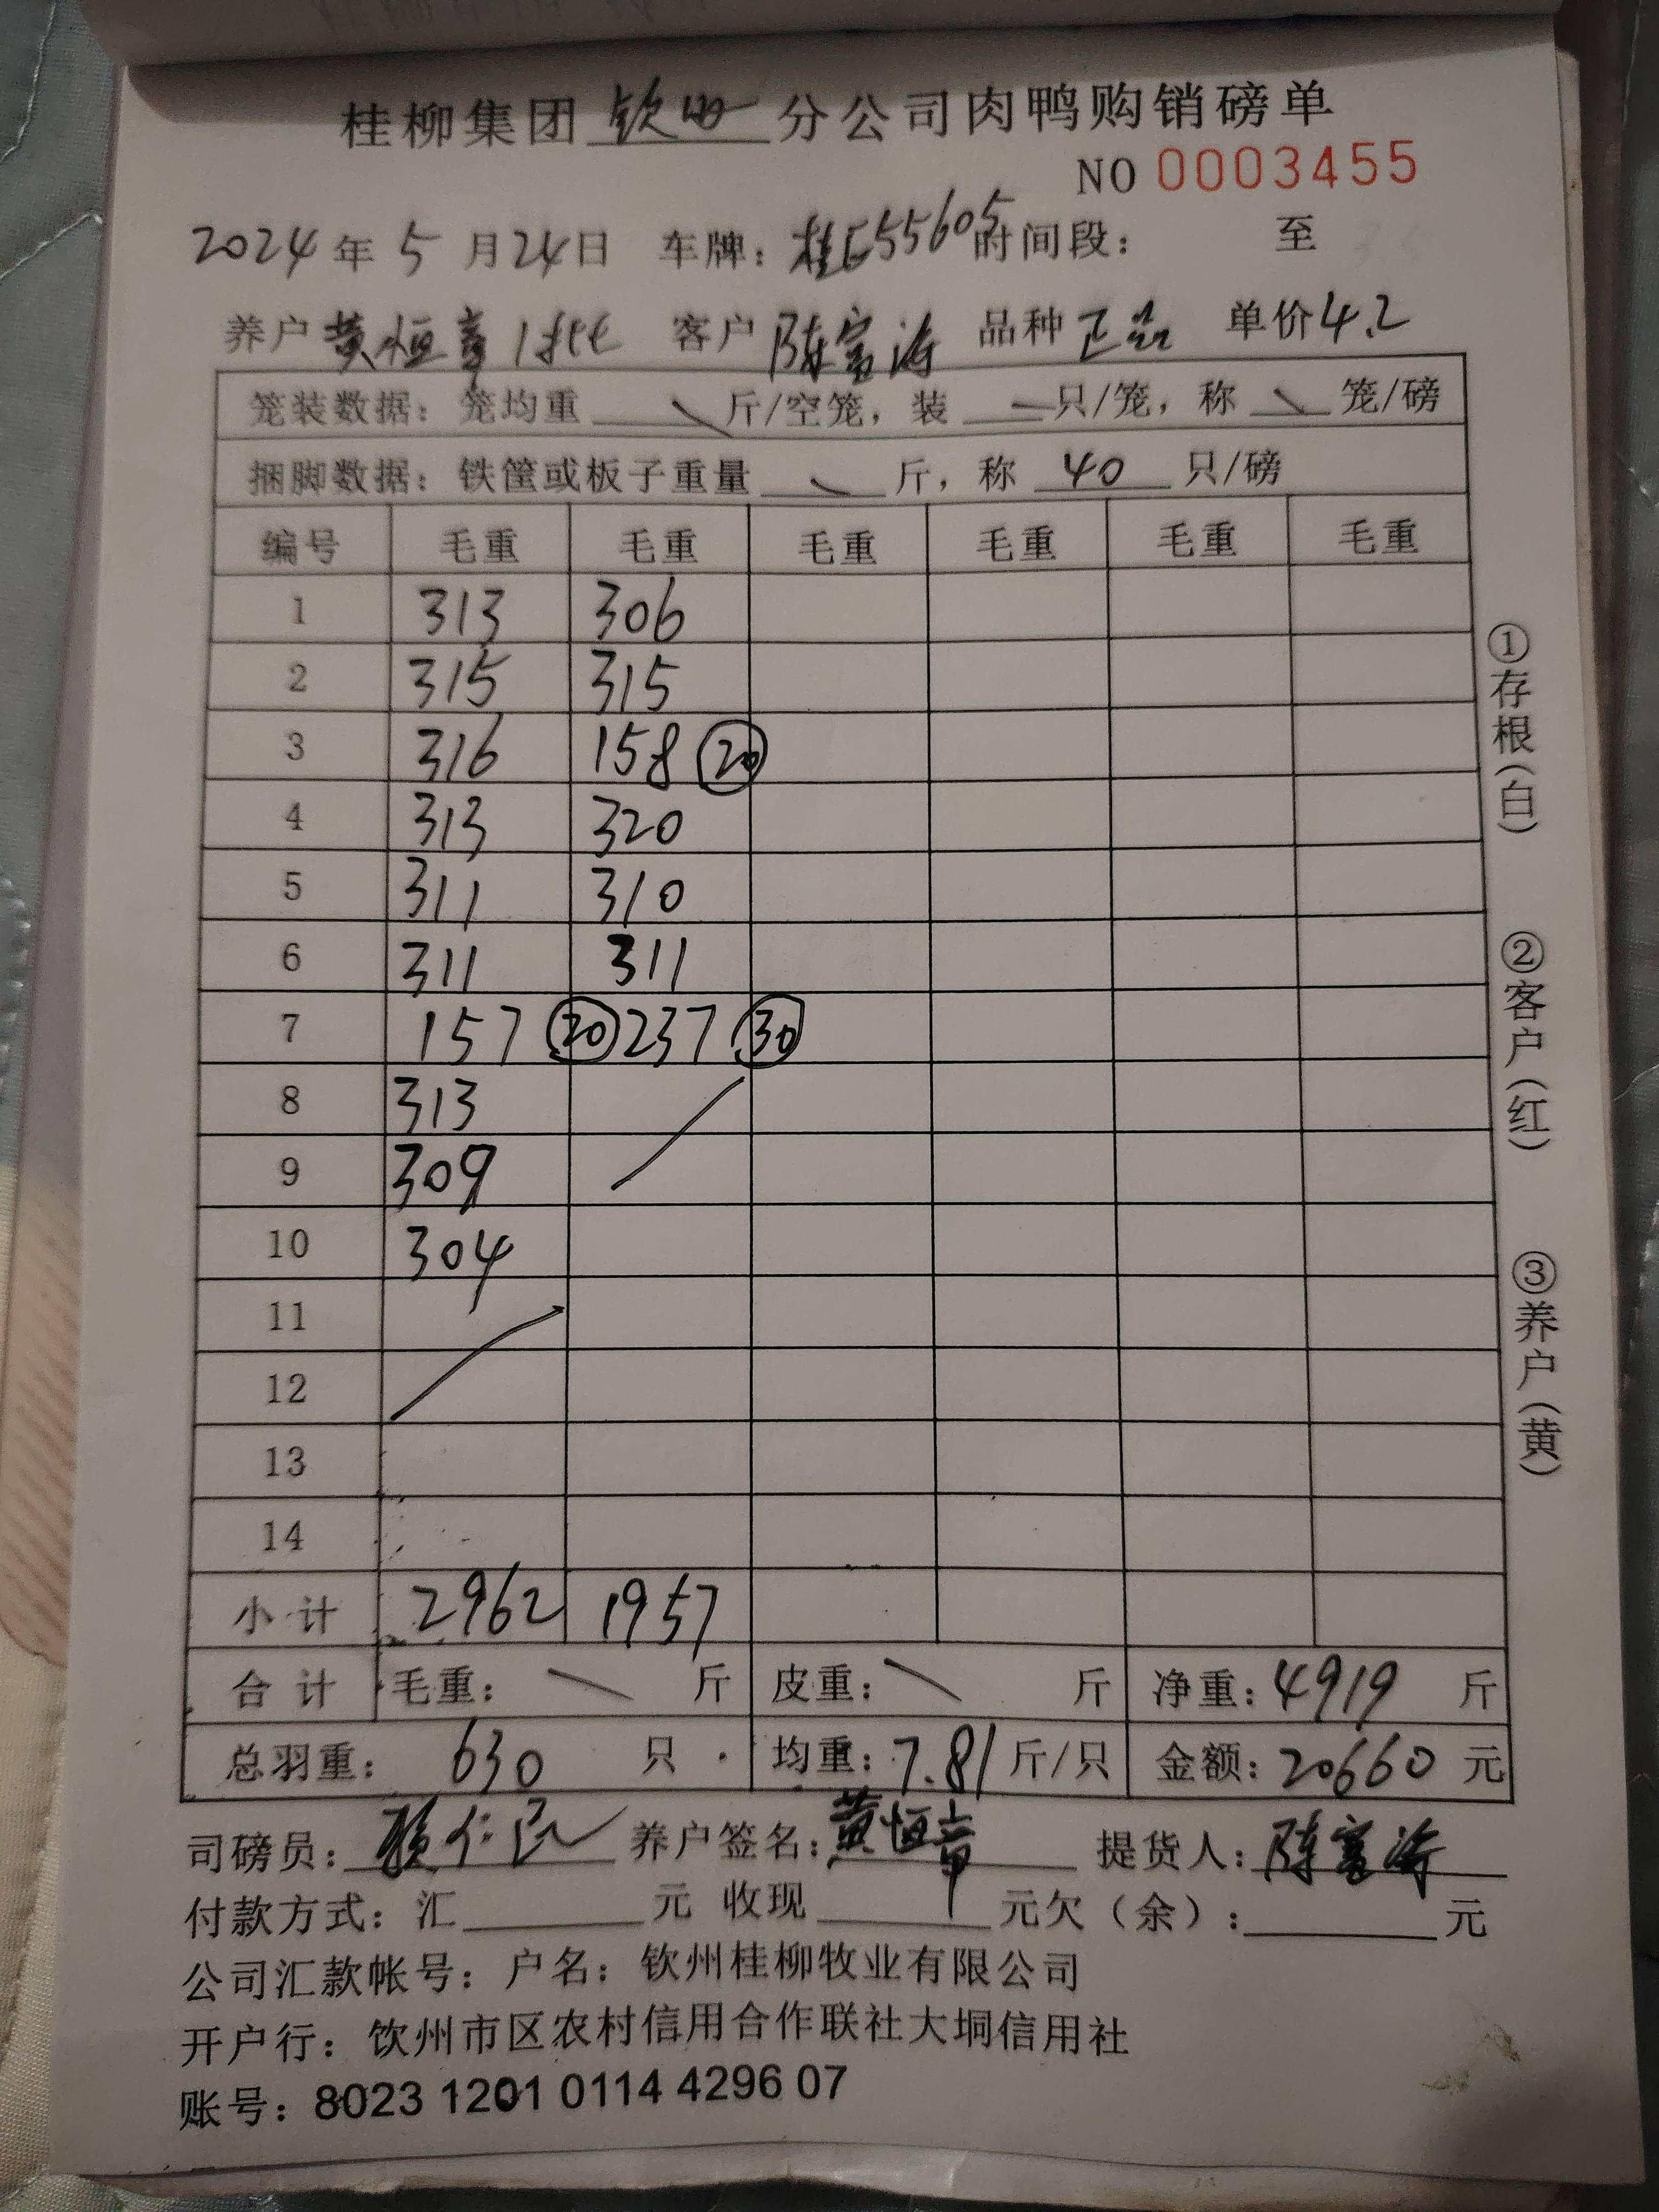 桂柳集团 钦州 分公司肉鸭购销磅单
NO 0003455
2024 年 5 月 24 日 车牌：桂E55605 时间段： 至
养户 黄恒章 1批 客户 陈富涛 品种 正品 单价 4.2
笼装数据：笼均重 \ 斤/空笼，装 — 只/笼，称 \ 笼/磅
捆脚数据：铁筐或板子重量 \ 斤，称 40 只/磅
编号 毛重 毛重 毛重 毛重 毛重 毛重
1 313 306
2 315 315
3 316 158 ⑳
4 313 320
5 311 310
6 311 311
7 157 ⑳ 237 ㉚
8 313
9 309
10 304
11
12
13
14
小计 2962 1957
合计 毛重： \ 斤 皮重： \ 斤 净重：4919 斤
总羽重： 630 只 均重：7.81 斤/只 金额：20660 元
司磅员： 仁民 养户签名：黄恒章 提货人：陈富涛
付款方式：汇 元 收现 元欠（余）： 元
公司汇款帐号：户名：钦州桂柳牧业有限公司
开户行：钦州市区农村信用合作联社大垌信用社
账号：8023 1201 0114 4296 07
①存根（白）
②客户（红）
③养户（黄）